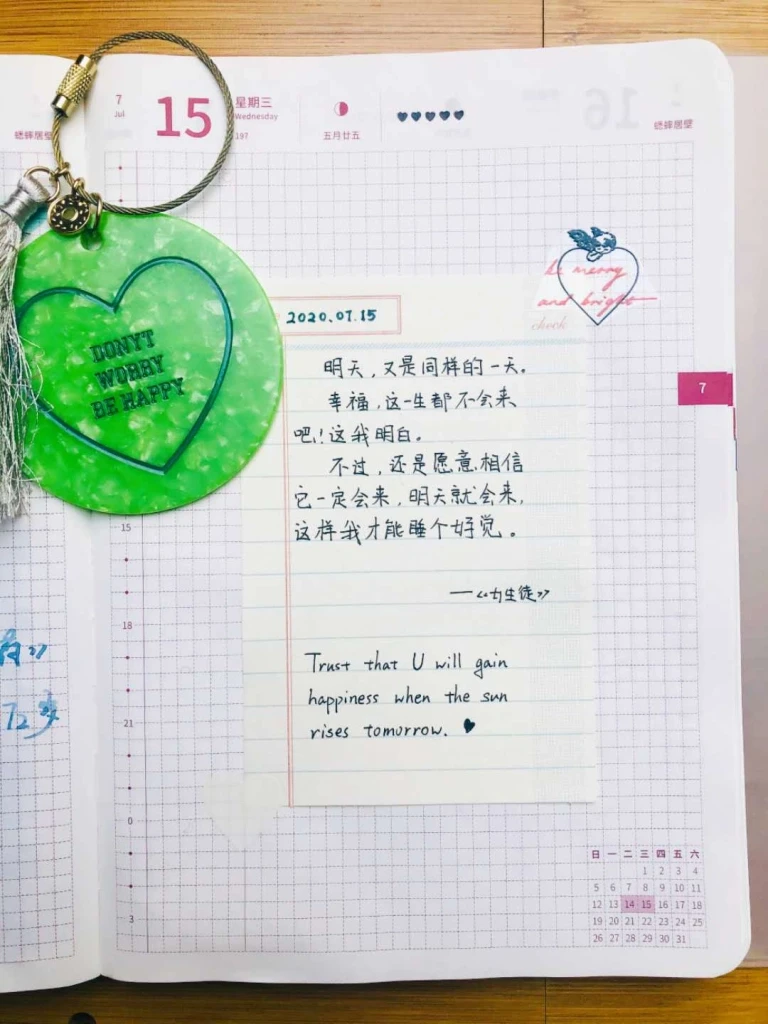 7
Jul
15
星期三
Wednesday
197
五月廿五
16
蟋蟀居壁
蟋蟀居壁
be merry
and bright
check
DON'T
WORRY
BE HAPPY
2020.07.15
明天，又是同样的一天。
幸福，这一生都不会来
吧！这我明白。
不过，还是愿意相信
它一定会来，明天就会来，
这样我才能睡个好觉。
—《女生徒》
Trust that U will gain
happiness when the sun
rises tomorrow.
7
15
18
21
0
3
72岁
日 一 二 三 四 五 六
1 2 3 4
5 6 7 8 9 10 11
12 13 14 15 16 17 18
19 20 21 22 23 24 25
26 27 28 29 30 31